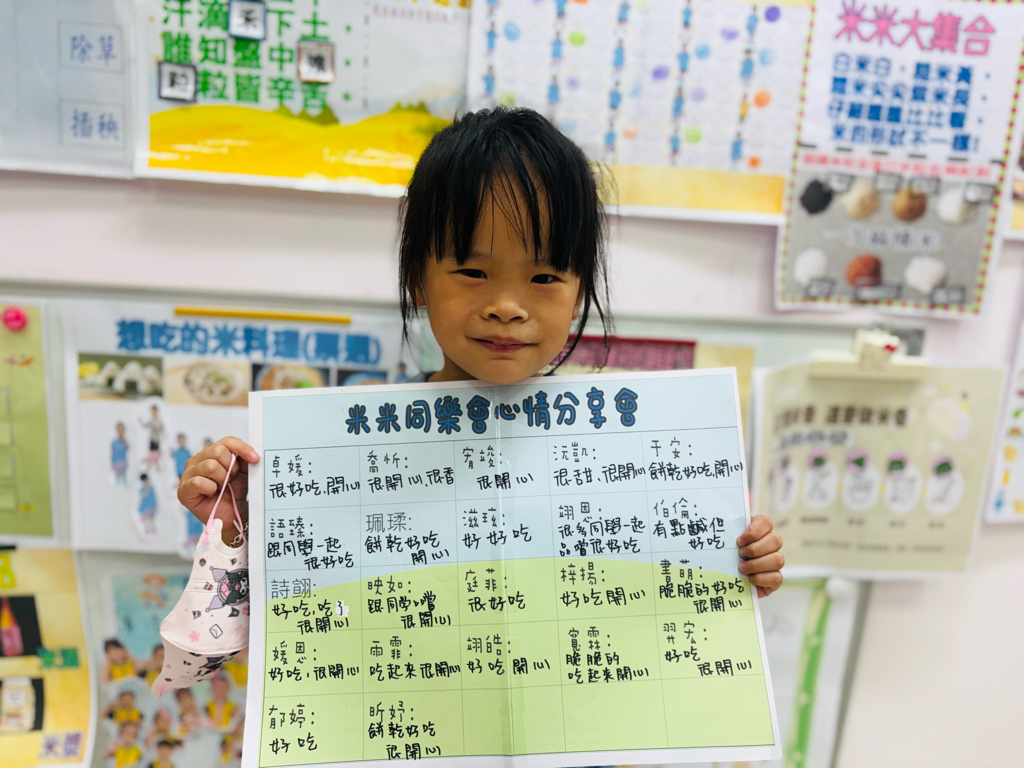 除草
插秧
汗滴禾下土
誰知盤中飧
粒粒皆辛苦
米米大集合
白米白，糙米黃，
仔細壓壓比比看，
米的形狀不一樣！
想吃的米料理(票選)
米米同樂會心情分享會
卓媛：
很好吃、開心
喬忻：
很開心、很香
宥竣：
很開心
沅凱：
很甜、很開心
于安：
餅乾好吃、開心
語臻：
跟同學一起
很好吃
珮瑈：
餅乾好吃
開心
滋玹：
好好吃
翊恩：
很多同學一起
品嚐很好吃
伯倫：
有點鹹但
好吃
詩翮：
好吃、吃了
很開心
映如：
跟同學嚐
很開心
庭菲：
很好吃
梓揚：
好吃開心
書萌：
脆脆的好吃
很開心
媛恩：
好吃、很開心
雨霏：
吃起來很開心
翊皓：
好吃開心
寬霖：
脆脆的
吃起來開心
羿宏：
好吃
很開心
郁婷：
好吃
昕妤：
餅乾好吃
很開心
米漿